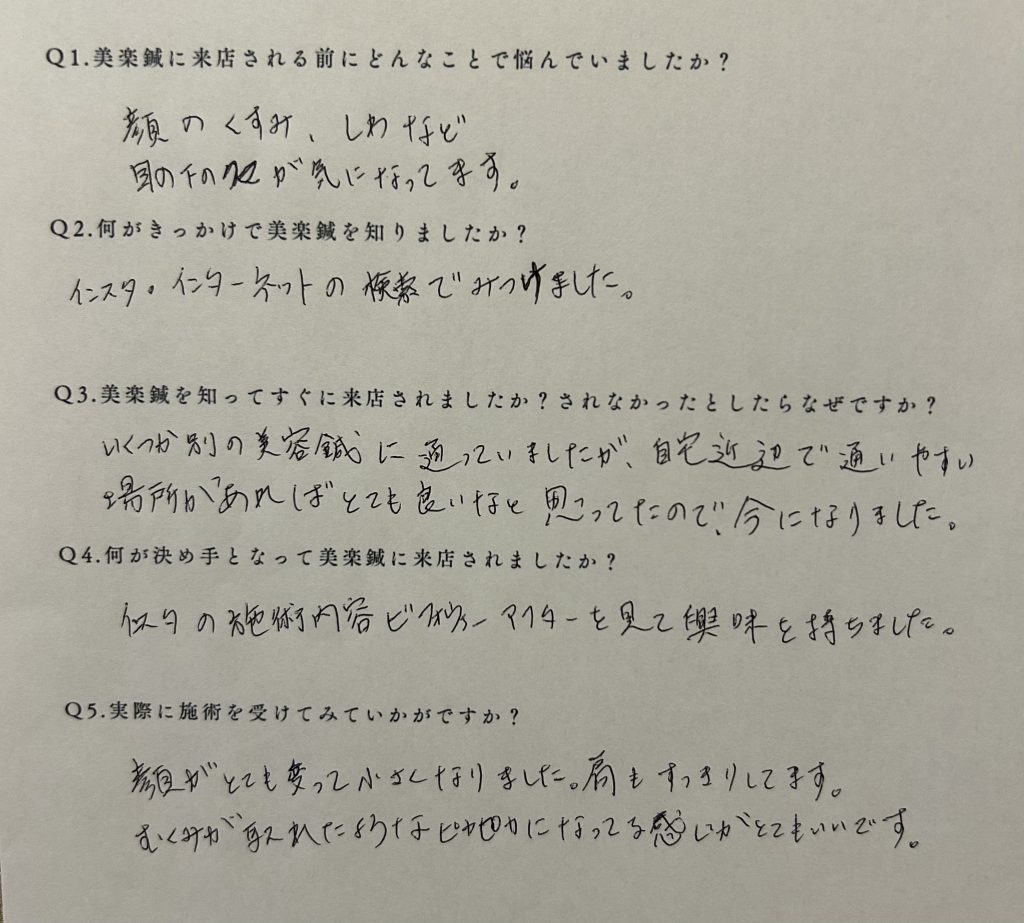 Q1.美楽鍼に来店される前にどんなことで悩んでいましたか？
顔のくすみ、しわなど
目の下の が気になってます。
Q2.何がきっかけで美楽鍼を知りましたか？
インスタ・インターネットの検索でみつけました。
Q3.美楽鍼を知ってすぐに来店されましたか？されなかったとしたらなぜですか？
いくつか別の美容鍼に通っていましたが、自宅近辺で通いやすい
場所があればとても良いなと思ってたので、今になりました。
Q4.何が決め手となって美楽鍼に来店されましたか？
インスタの施術内容ビフォーアフターを見て興味を持ちました。
Q5.実際に施術を受けてみていかがですか？
顔がとても変って小さくなりました。肩もすっきりしてます。
むくみが取れたようなピカピカになってる感じがとてもいいです。